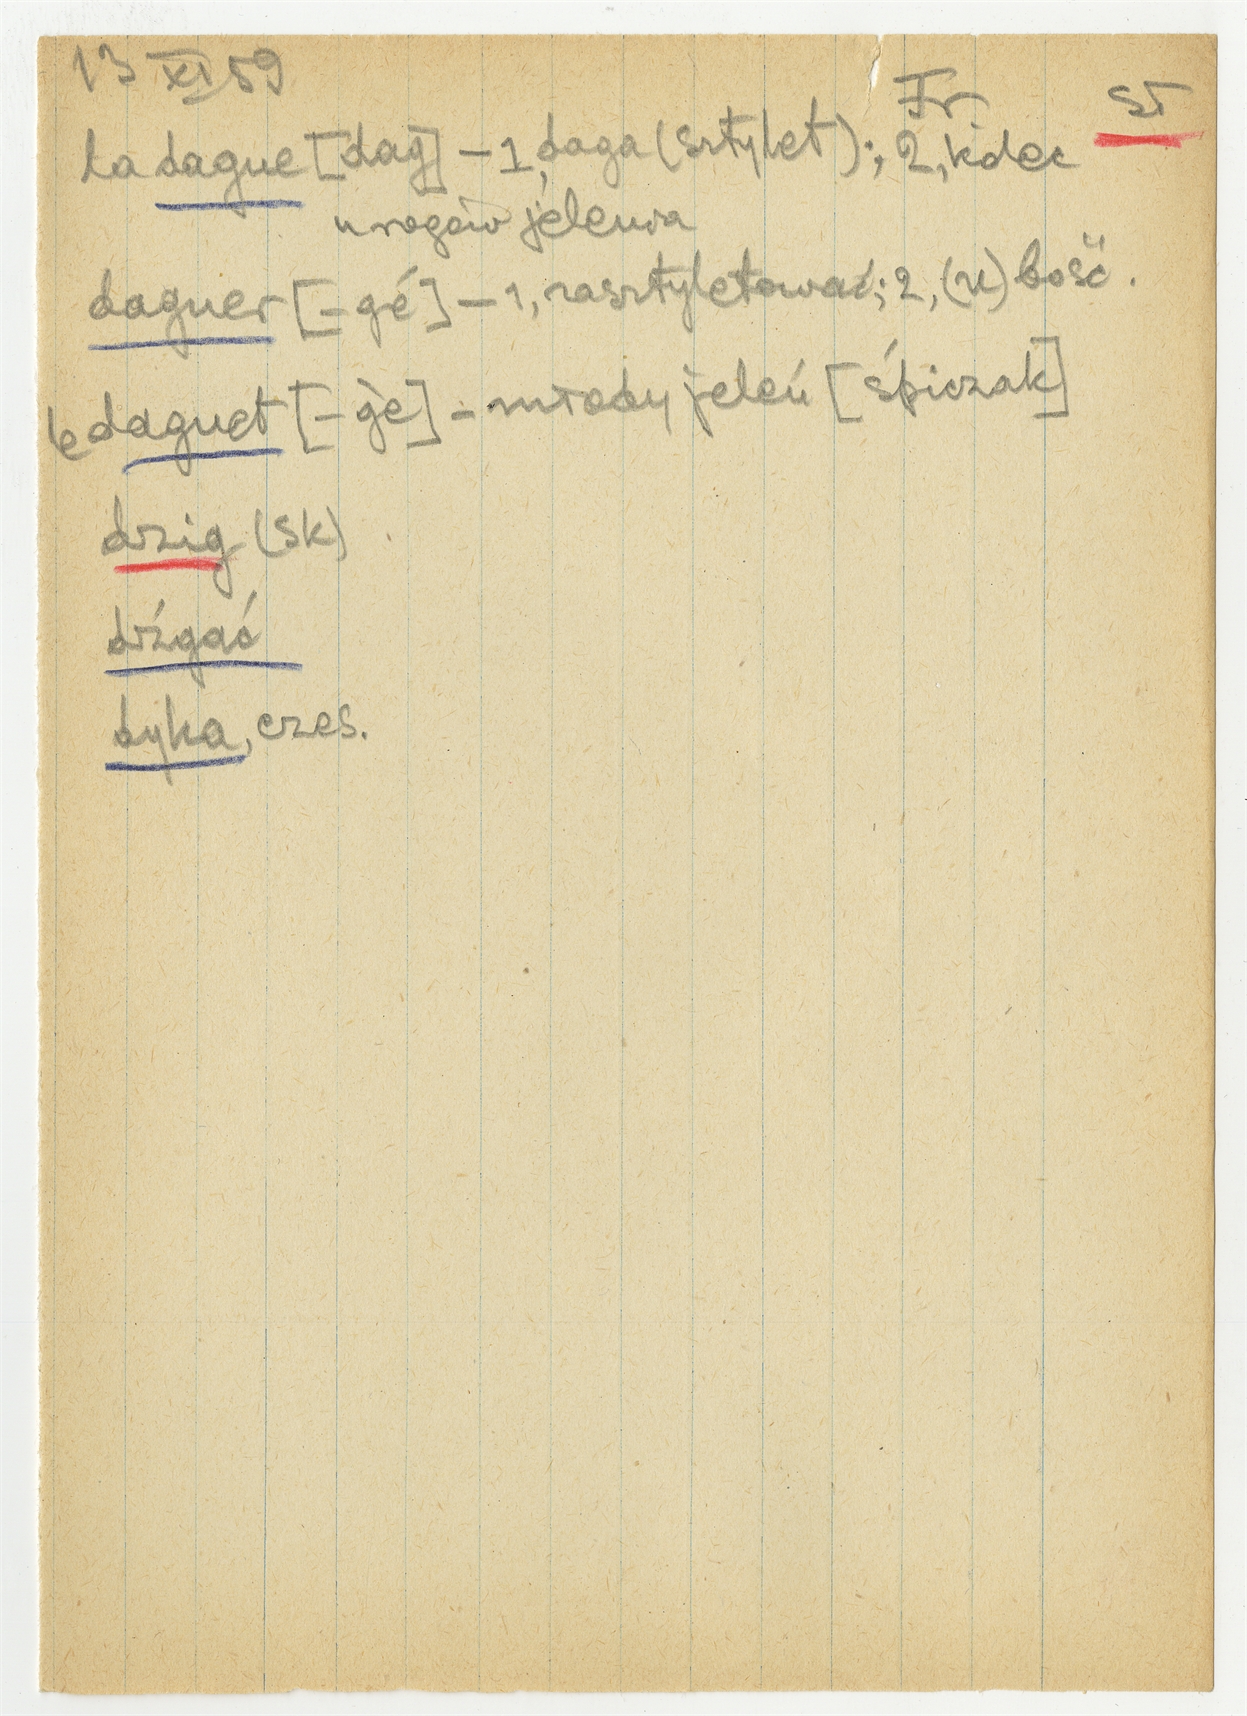 13 XI 59
Fr. SŁ
la dague [dag] – 1, daga (sztylet); 2, kolec
u rogów jelenia
daguer [–gé] – 1, zasztyletować; 2, (u)bość.
le daguet [–gè] – młody jeleń [śpiczak]
dzig (sk)
dźgać
dyka, czes.